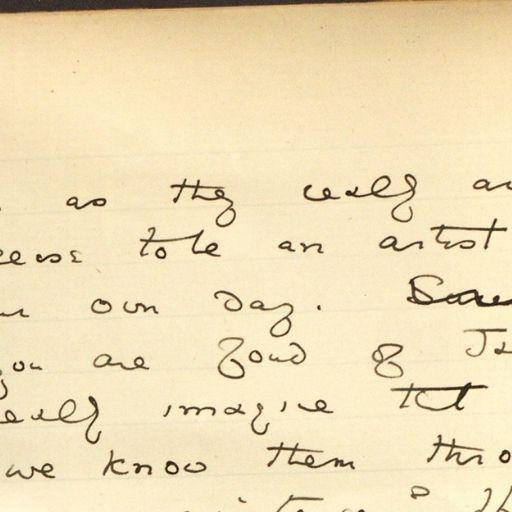 as they really
cease to be an artist
own day.
you are fond of
really imagine that
we know them